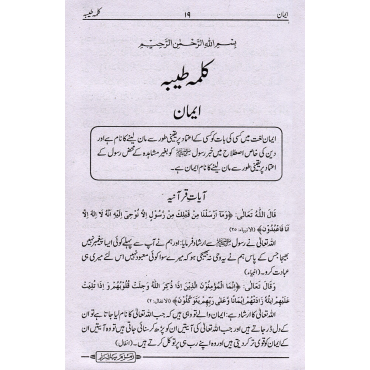 ایمان ۱۹ کلمہ طیبہ
بِسْمِ اللهِ الرَّحْمٰنِ الرَّحِيْمِ
کلمہ طیبہ
ایمان
ایمان لغت میں کسی کی بات کو کسی کے اعتماد پر یقینی طور سے مان لینے کا نام ہے اور
دین کی خاص اصطلاح میں خبرِ رسول ﷺ کو بغیر مشاہدہ کے محض رسول کے
اعتماد پر یقینی طور سے مان لینے کا نام ایمان ہے۔
آیاتِ قرآنیہ
قَالَ اللهُ تَعَالٰى: ﴿وَمَا اَرْسَلْنَا مِنْ قَبْلِكَ مِنْ رَّسُوْلٍ اِلَّا نُوْحِىْ اِلَيْهِ اَنَّهُ لَا اِلٰهَ اِلَّا
اَنَا فَاعْبُدُوْنِ﴾ (الانبیاء: ۲۵)
اللہ تعالیٰ نے رسول ﷺ سے ارشاد فرمایا: اور ہم نے آپ سے پہلے کوئی ایسا پیغمبر نہیں
بھیجا جس کے پاس ہم نے یہ وحی نہ بھیجی ہو کہ میرے سوا کوئی معبود نہیں اس لئے میری ہی
عبادت کرو۔ (انبیاء)
وَقَالَ تَعَالٰى: ﴿اِنَّمَا الْمُؤْمِنُوْنَ الَّذِيْنَ اِذَا ذُكِرَ اللهُ وَجِلَتْ قُلُوْبُهُمْ وَ اِذَا تُلِيَتْ
عَلَيْهِمْ اٰيٰتُهُ زَادَتْهُمْ اِيْمَانًا وَّعَلٰى رَبِّهِمْ يَتَوَكَّلُوْنَ﴾ (الانفال: ۲)
اللہ تعالیٰ کا ارشاد ہے: ایمان والے تو وہی ہیں کہ جب اللہ تعالیٰ کا نام لیا جاتا ہے تو ان
کے دل ڈر جاتے ہیں اور جب اللہ تعالیٰ کی آیتیں ان کو پڑھ کر سنائی جاتی ہیں تو وہ آیتیں ان
کے ایمان کو قوی تر کر دیتی ہیں اور وہ اپنے رب ہی پر توکل کرتے ہیں۔ (انفال)